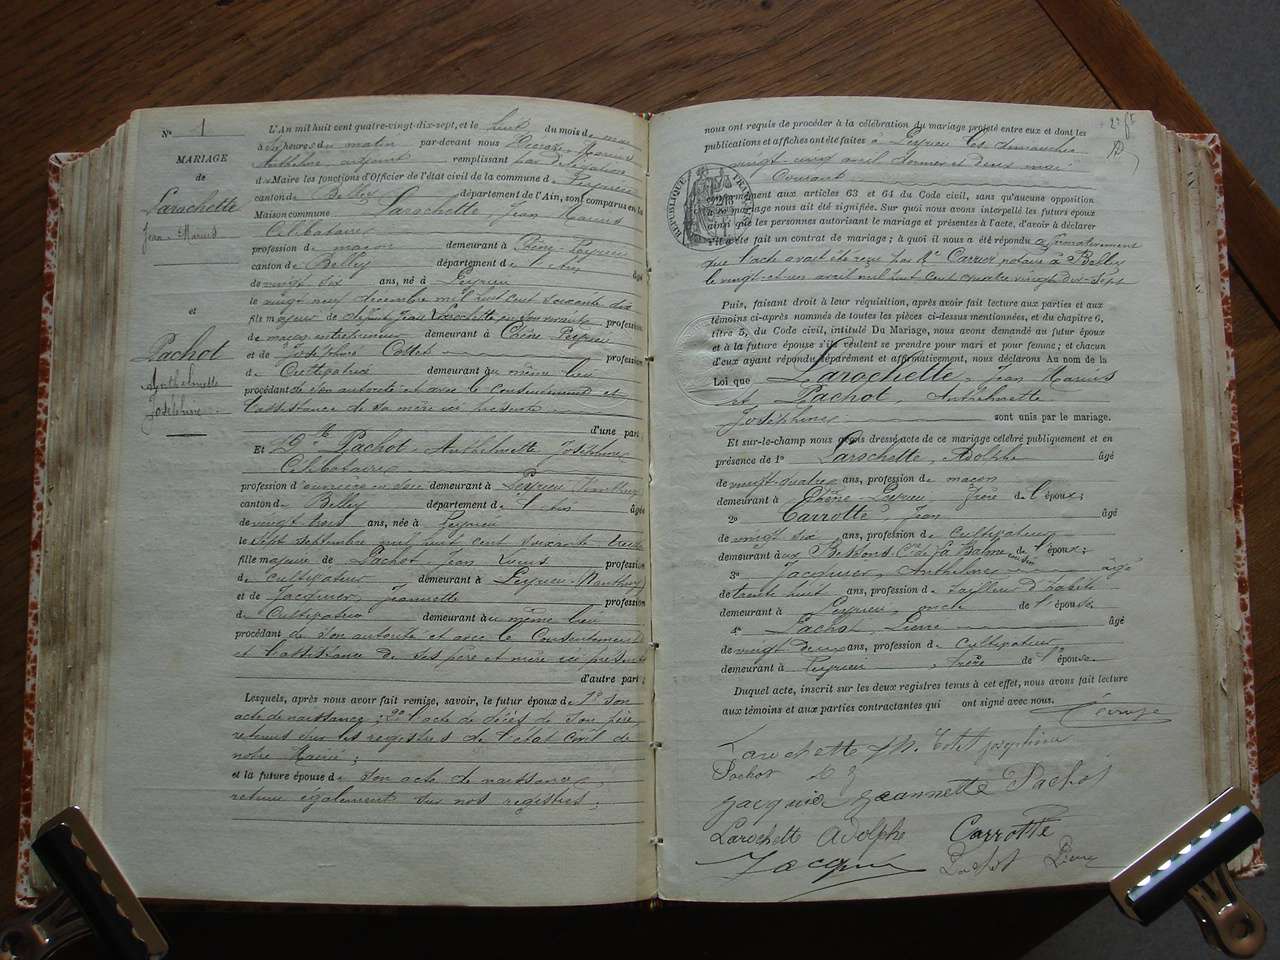 N° 1
MARIAGE
de
Larochette
Jean Marius
et
Pachot
Anthelmette
Joséphine
L'An mil huit cent quatre-vingt-dix-sept, et le huit du mois de mai
à heures du matin par-devant nous Marius
Anthelme adjoint remplissant par délégation
du Maire les fonctions d'Officier de l'état civil de la commune de Peyrieu
canton de Belley département de l'Ain, sont comparus en la
Maison commune Larochette Jean Marius
Célibataire
profession de maçon demeurant à Chêne-Peyrieu
canton de Belley département de l'Ain âgé
de vingt six ans, né à Peyrieu
le vingt neuf décembre mil huit cent soixante dix
fils majeur de défunt Jean Larochette en son vivant profession
de maçon entrepreneur demeurant à Chêne Peyrieu
et de Joséphine Cottet profession
de Cultivatrice demeurant au même lieu
procédant de son autorité et avec le consentement et
l'assistance de sa mère ici présente
d'une part
Et Dlle Pachot Anthelmette Joséphine
Célibataire
profession d'ouvrière en soie demeurant à Peyrieu
canton de Belley département de l'Ain âgée
de vingt trois ans, née à Peyrieu
le Sept Septembre mil huit cent soixante treize
fille majeure de Pachot Jean Louis profession
de cultivateur demeurant à Peyrieu
et de Jacquier Jeannette profession
de Cultivatrice demeurant au même lieu
procédant de son autorité et avec le Consentement
et l'assistance de ses père et mère ici présents
d'autre part ;
Lesquels, après nous avoir fait remise, savoir, le futur époux de 1° son
acte de naissance ; 2° l'acte de décès de son père
retenus sur les registres de l'état civil de
notre Mairie ;
et la future épouse de son acte de naissance
retenu également sur nos registres ;
2e ft
nous ont requis de procéder à la célébration du mariage projeté entre eux et dont les
publications et affiches ont été faites à Peyrieu les dimanches
vingt-cinq avril dernier et deux mai
Courant
RÉPUBLIQUE FRANÇAISE
conformément aux articles 63 et 64 du Code civil, sans qu'aucune opposition
à ce mariage nous ait été signifiée. Sur quoi nous avons interpellé les futurs époux
ainsi que les personnes autorisant le mariage et présentes à l'acte, d'avoir à déclarer
s'il a été fait un contrat de mariage ; à quoi il nous a été répondu affirmativement
que l'acte avait été reçu par Me Carrier notaire à Belley
le vingt-et-un avril mil huit cent quatre vingt dix-sept
Puis, faisant droit à leur réquisition, après avoir fait lecture aux parties et aux
témoins ci-après nommés de toutes les pièces ci-dessus mentionnées, et du chapitre 6,
titre 5, du Code civil, intitulé Du Mariage, nous avons demandé au futur époux
et à la future épouse s'ils veulent se prendre pour mari et pour femme ; et chacun
d'eux ayant répondu séparément et affirmativement, nous déclarons Au nom de la
Loi que Larochette, Jean Marius
et Pachot, Anthelmette
Joséphine sont unis par le mariage.
Et sur-le-champ nous avons dressé acte de ce mariage célébré publiquement et en
présence de 1° Larochette, Adolphe âgé
de vingt-quatre ans, profession de maçon
demeurant à Chêne-Peyrieu, frère de l'époux ;
2° Carrotte, Jean âgé
de vingt six ans, profession de Cultivateur
demeurant aux Bessons Cne de La Balme cousin de l'époux ;
3° Jacquier, Anthelme âgé
de trente huit ans, profession de tailleur d'habits
demeurant à Peyrieu, oncle de l'épouse
4° Pachot, Pierre âgé
de vingt deux ans, profession de Cultivateur
demeurant à Peyrieu, frère de l'épouse
Duquel acte, inscrit sur les deux registres tenus à cet effet, nous avons fait lecture
aux témoins et aux parties contractantes qui ont signé avec nous.
Larochette JM. Cotet Joséphine
Pachot
Jacquier Jeannette Pachot
Larochette Adolphe Carrotte
Jacquier Pachot Pierre